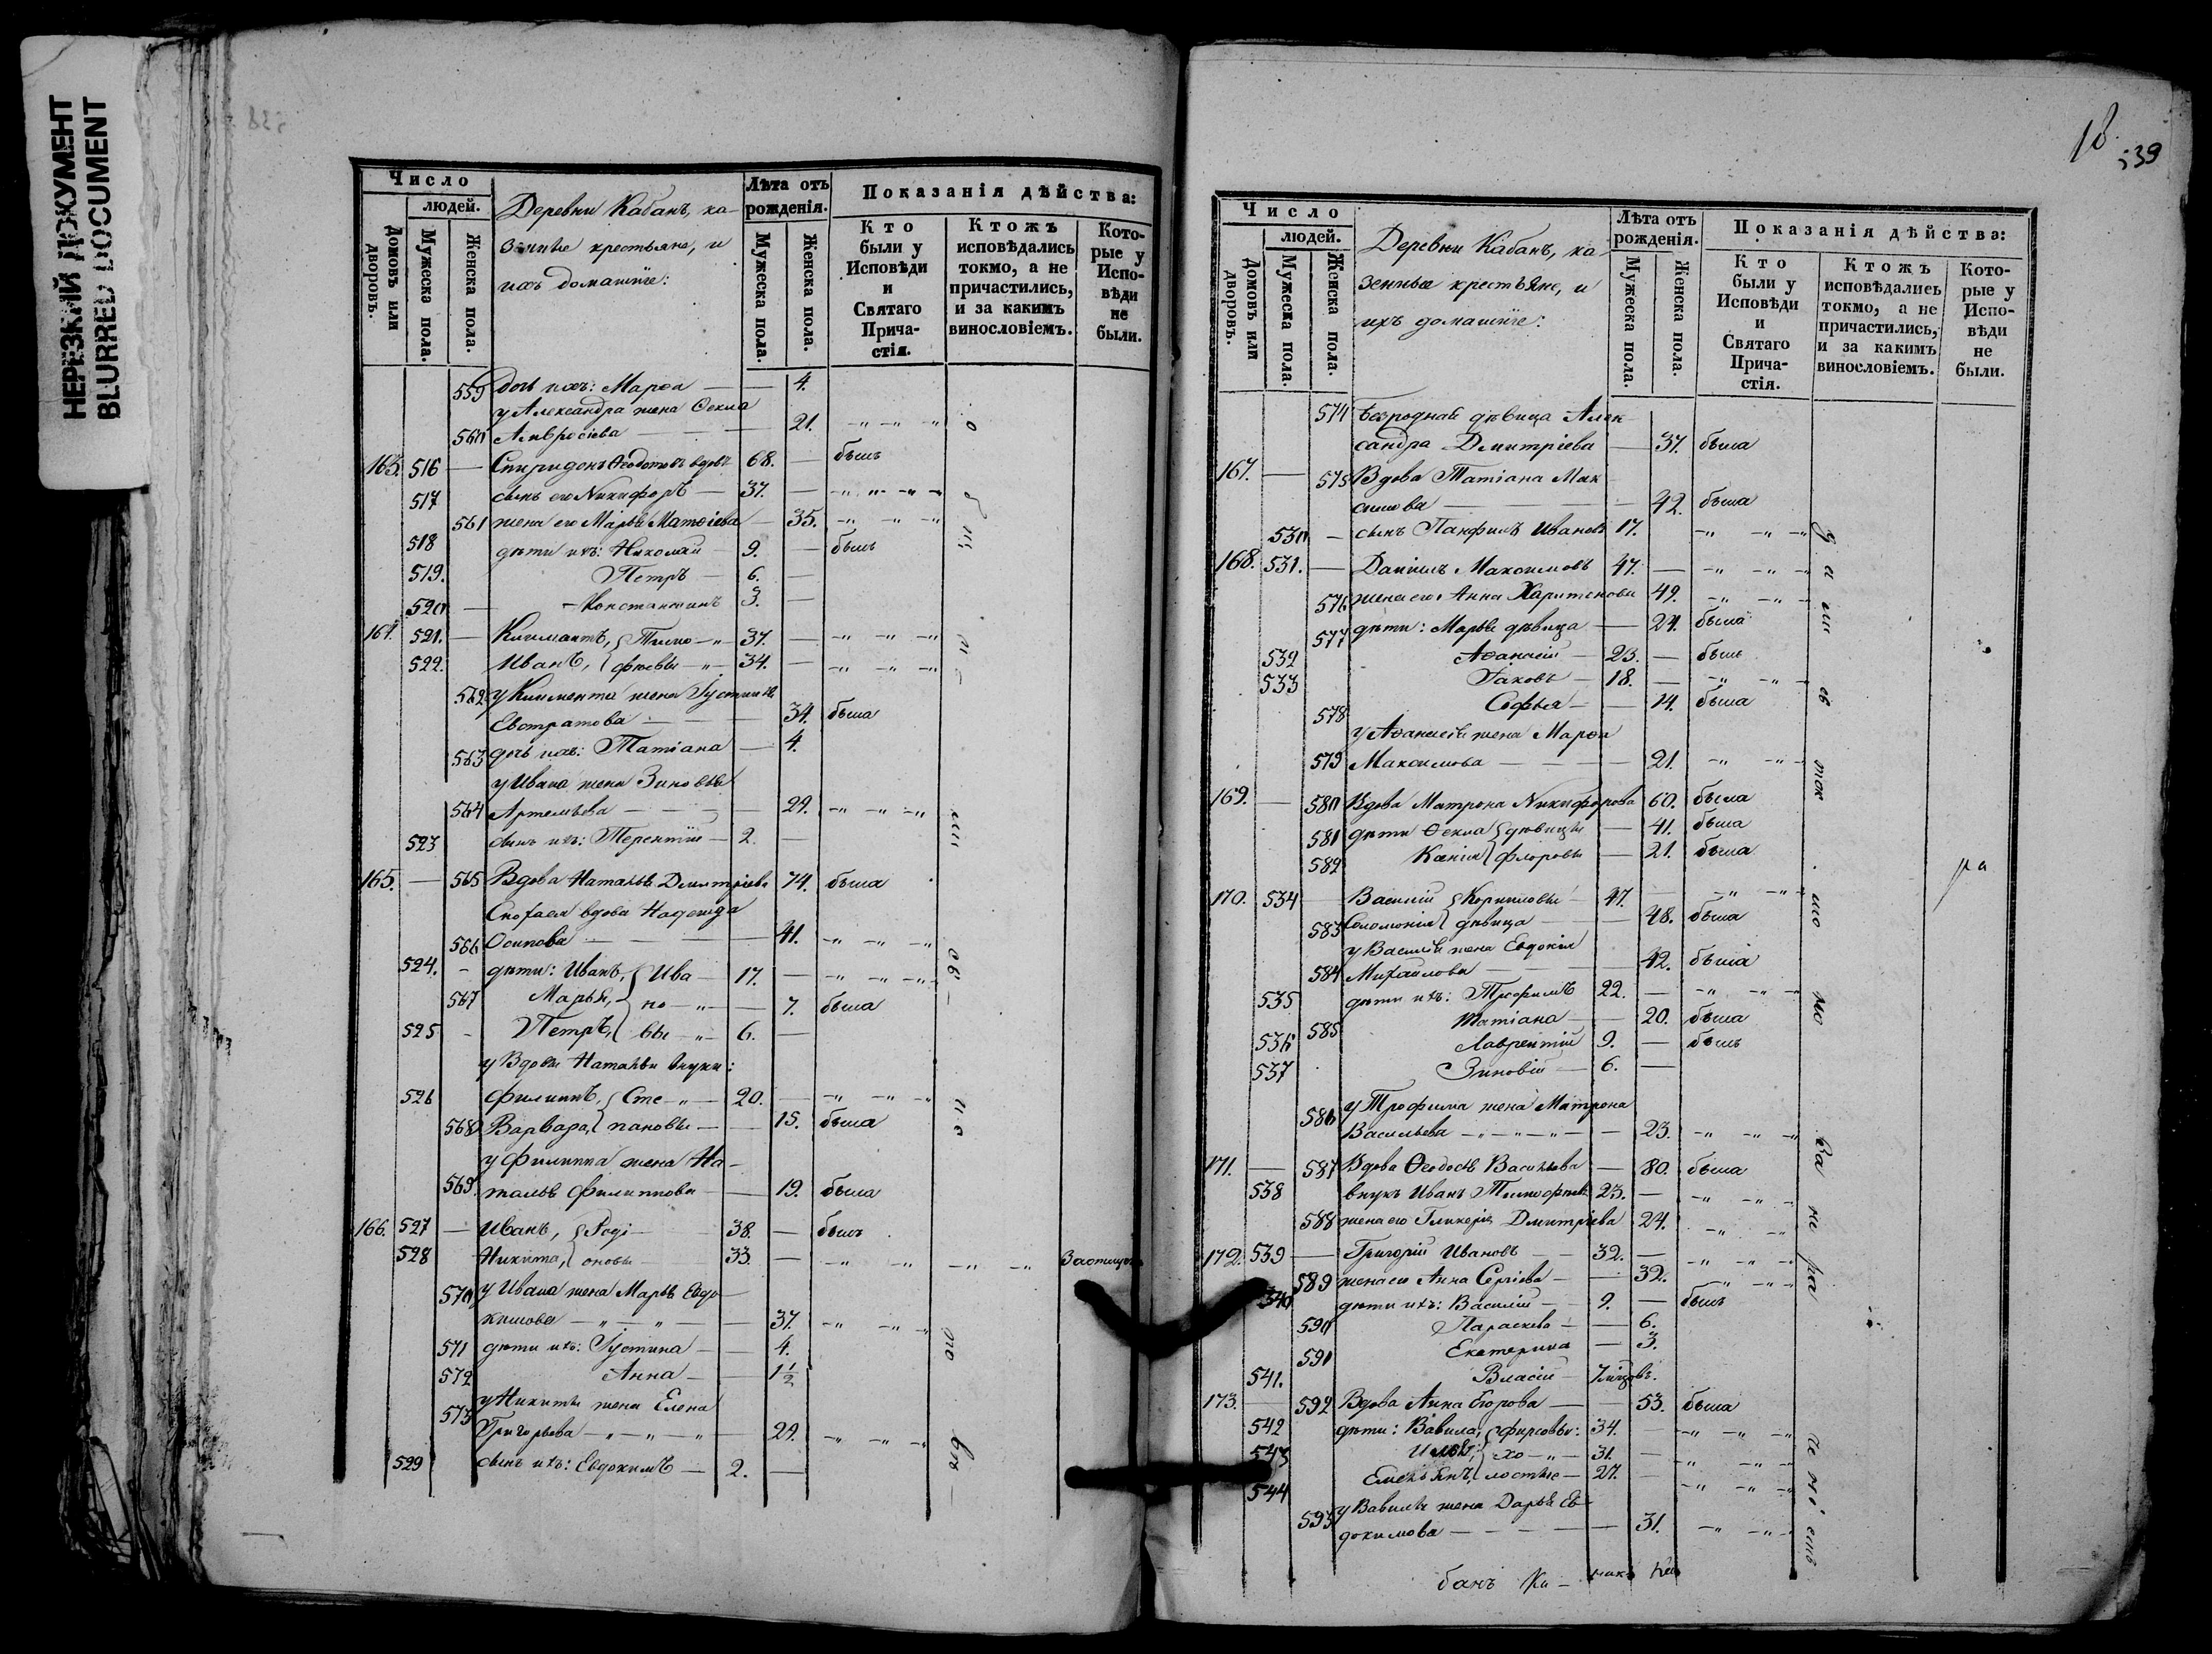 НЕРЕЗКИЙ ДОКУМЕНТ
BLURRED DOCUMENT
Число
людей.
Домовъ или дворовъ.
Мужеска пола.
Женска пола.
Деревни Кабанъ, ка-
зенные крестьяне, и
ихъ домашніе:
Лѣта отъ рожденія.
Мужеска пола.
Женска пола.
Показанія дѣйства:
Кто были у Исповѣди и Святаго Прича-стія.
Ктожъ исповѣдались токмо, а не причастились, и за какимъ винословіемъ.
Кото-рые у Испо-вѣди не были.
559 дочь ихъ: Марѳа — — 4.
у Александра жена Ѳекла
560 Амвросіева — — 21. -„- -„- „
516 — Спиридонъ Ѳедотовъ вдовъ 68. — былъ
517 сынъ его Никифоръ — 37. — -„- -„- -„-
561 жена его Марья Матѳіева — 35. -„- -„- -„-
518 дѣти ихъ: Николай — 9. — былъ
519. Петръ — 6. —
520 — Константинъ 3. —
521. — Климантъ, Тимо -„- 37. — -„- -„- -„-
522. Иванъ, фѣевы -„- 34. — -„- -„- -„-
562 у Климента жена Іустинья
Евстратова — — 34. была
563 дочь ихъ: Татіана — 4.
у Ивана жена Зиновья
564 Артемьева — — 29. -„- -„- -„-
523 сынъ ихъ: Терентій — 2. —
165. — 565 Вдова Наталья Дмитріева 74. была
Сноха ея вдова Надежда
566 Осипова — — — 41. -„- -„- -„-
524. - дѣти: Иванъ, Ива — 17. — -„- -„- -„-
567 Марья, но -„- — 7. была
525 - Петръ, вы -„- 6. —
у Вдовы Натальи внуки:
526 Филиппъ, Сте -„- 20. — -„- -„- -„-
568 Варвара, пановы — — 15. была
у Филиппа жена На-
569. талья Филиппова — — 19. была
166. 527 — Иванъ, Роді — 38. — былъ
528 Никита, оновы — 33. — -„- -„- -„- -„-
570 у Ивана жена Марья Евдо-
кимова -„- -„- — — 37. -„- -„- -„-
571 дѣти ихъ: Іустина — — 4.
572 Анна — — 1½
573 у Никиты жена Елена
Григорьева -„-„-„- — 29. -„- -„- -„-
529 сынъ ихъ: Евдокимъ — 2. —
18.
539
Число
людей.
Домовъ или дворовъ.
Мужеска пола.
Женска пола.
Деревни Кабанъ, ка-
зенные крестьяне, и
ихъ домашніе:
Лѣта отъ рожденія.
Мужеска пола.
Женска пола.
Показанія дѣйства:
Кто были у Исповѣди и Святаго Прича-стія.
Ктожъ исповѣдались токмо, а не причастились, и за какимъ винословіемъ.
Кото-рые у Испо-вѣди не были.
574 Безродная дѣвица Алек-
сандра Дмитріева — 37. была
167. — 575 Вдова Татіана Мак-
симова — — 42. была
530 — сынъ Панфилъ Ивановъ 17. -„- -„- -„-
168. 531. — Даніилъ Максимовъ 47. — -„- -„- -„-
576 жена его Анна Харитонова 49. -„- -„- -„-
577 дѣти: Марья дѣвица — 24. была
532 Аѳанасій — 23. — былъ
533 Іаковъ — 18. — -„- -„- -„-
578 Софья — — 14. была
у Аѳанасія жена Марѳа
579 Максимова — — — 21. -„- -„-
169. — 580 Вдова Матрона Никифорова 60. была
581 дѣти Ѳекла дѣвицы — 41. была
582 Ксенія Флоровы — 21. была
170. 534 — Василій Корниловы 47. — -„- -„-
583 Соломонія дѣвица — — 48. была
у Василья жена Евдокія
584 Михайлова — — 42. была
535 дѣти ихъ: Трофимъ 22. — -„- -„- -„-
585 Татіана — — 20. была
536 Лаврентій 9. — былъ
537 Зиновій — 6. —
586 у Трофима жена Матрона
Васильева -„-„-„- — 23. -„- -„- -„-
171. — 587 Вдова Ѳеодосья Васильева — 80. была
538 внукъ Иванъ Тимофѣевъ 23. — -„- -„- -
588 жена его Гликерія Дмитріева 24. -„- -„-
172. 539 — Григорій Ивановъ — 32. — -„- -„- -
589 жена его Анна Сергіева — — 32. -„- -„- -
540 дѣти ихъ: Василій — 9. — былъ
590 Параскева — — 6.
591 Екатерина — 3.
541. Власій —
173. — 592 Вдова Анна Егорова — — 53. была
542 дѣти: Вавила, Фирсовы: 34. — -„- -„- -„-
543 Илья, хо -„- 31. — -„- -„- -„-
544 Емельянъ, лостые — 27. — -„- -„- -„-
593 у Вавилы жена Дарья Ев-
докимова — — — — 31. -„- -„- -
банъ Ка-